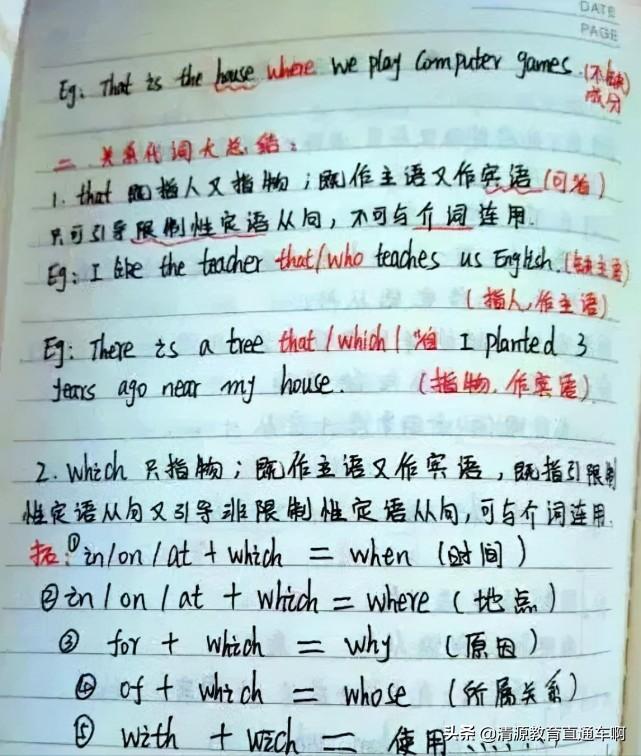 DATE
PAGE
Eg: That is the house where we play computer games. (不缺成分)
二 关系代词大总结:
1. that 既指人又指物;既作主语又作宾语(可省)
只可引导限制性定语从句,不可与介词连用.
Eg: I like the teacher that/who teaches us English. (缺主语)
(指人,作主语)
Eg: There is a tree that/which/省 I planted 3
years ago near my house. (指物.作宾语)
2. which 只指物;既作主语又作宾语,既指引限制
性定语从句又引导非限制性定语从句,可与介词连用.
拓:① in/on/at + which = when (时间)
② in/on/at + which = where (地点)
③ for + which = why (原因)
④ of + which = whose (所属关系)
⑤ with + wech = 使用
头条 @清源教育直通车啊